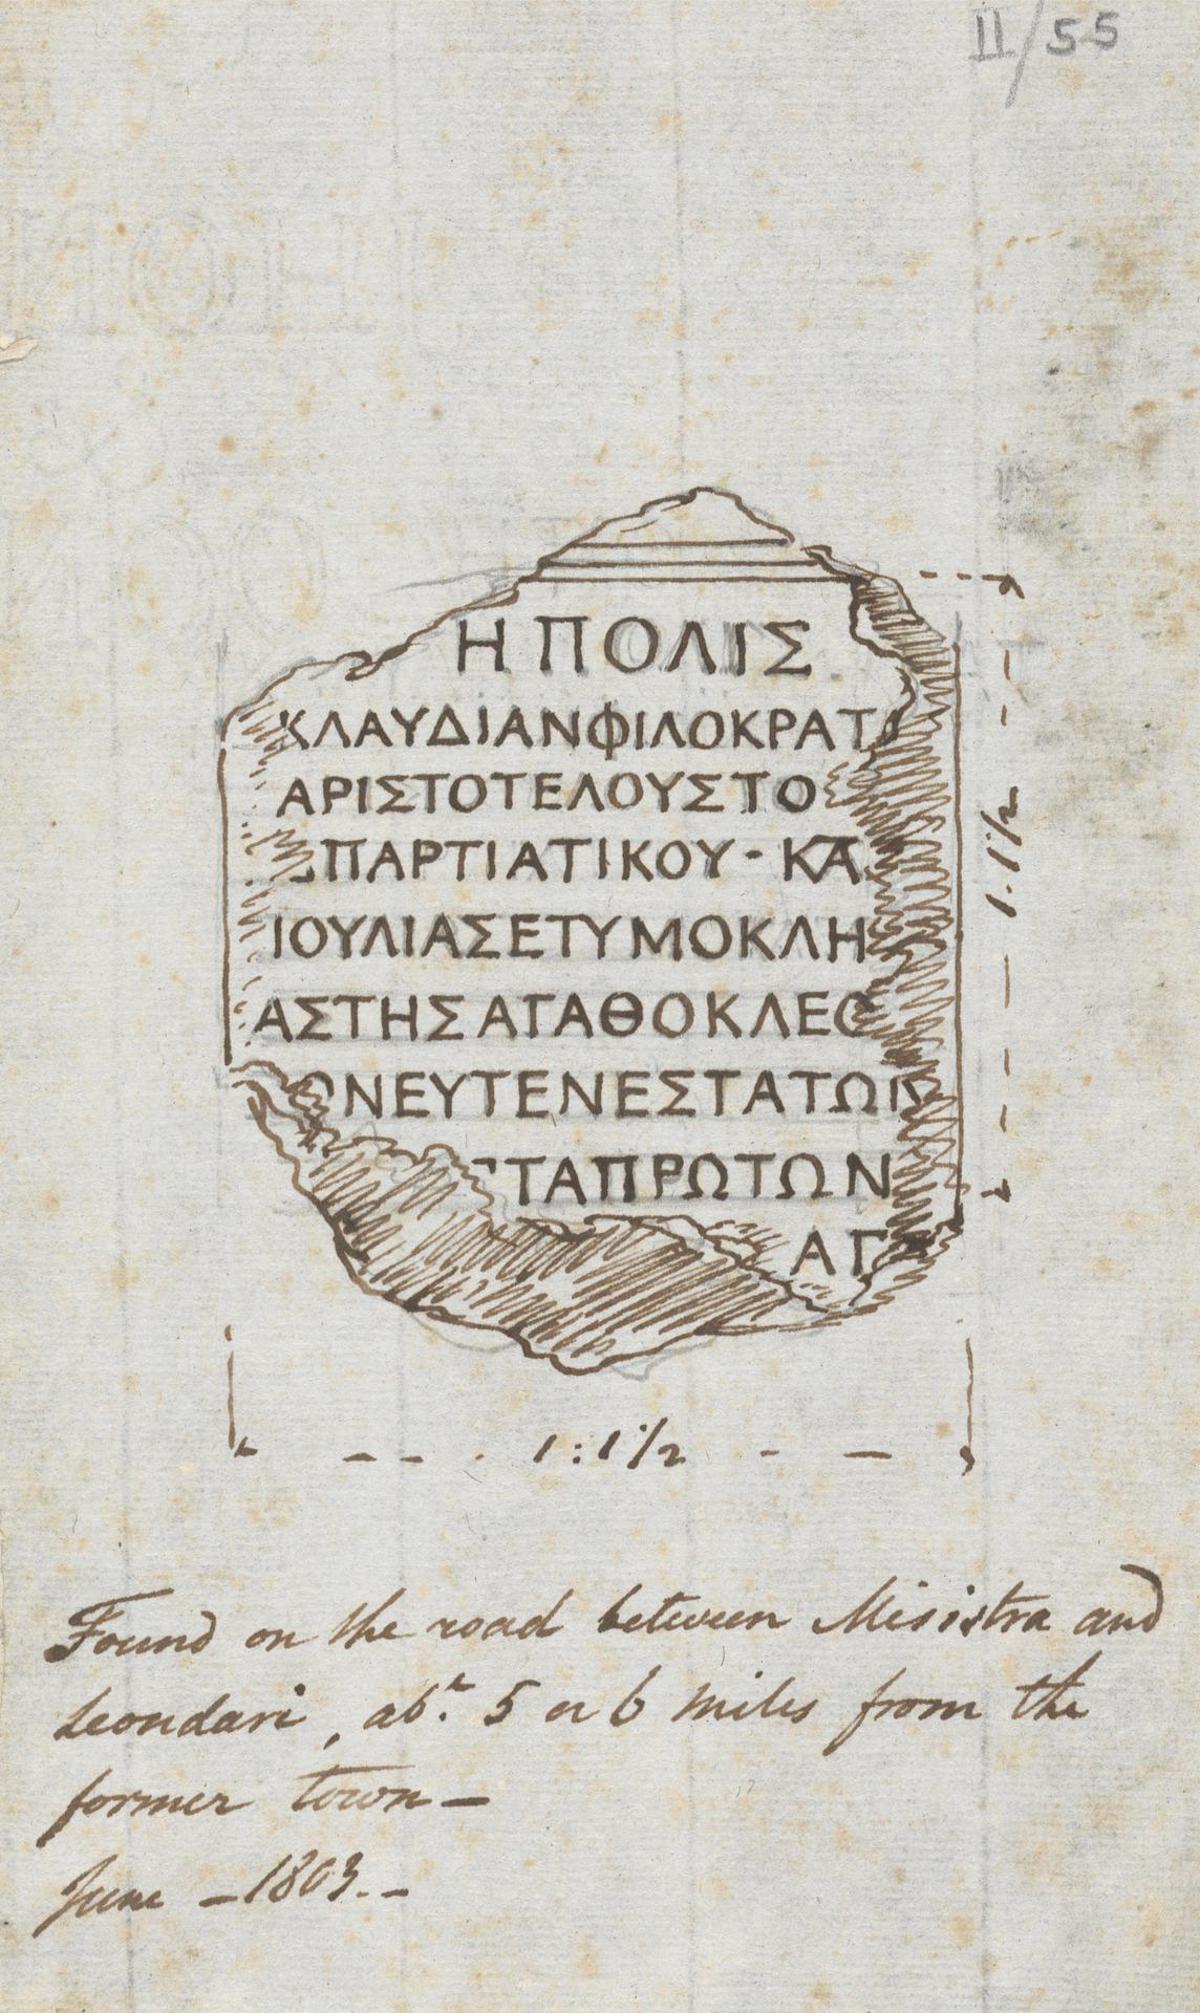 II/55
Η ΠΟΛΙΣ
ΚΛΑΥΔΙΑΝΦΙΛΟΚΡΑΤ
ΑΡΙΣΤΟΤΕΛΟΥΣΤΟ
ΠΑΡΤΙΑΤΙΚΟΥ-ΚΑ
ΙΟΥΛΙΑΣΕΤΥΜΟΚΛΗ
ΑΣΤΗΣΑΓΑΘΟΚΛΕΟ
ΩΝΕΥΓΕΝΕΣΤΑΤΩΝ
ΤΑΠΡΩΤΩΝ
ΑΓ
1.1½
1:1½
Found on the road between Misistra and
Leondari, abt. 5 or 6 miles from the
former town -
June - 1803.-